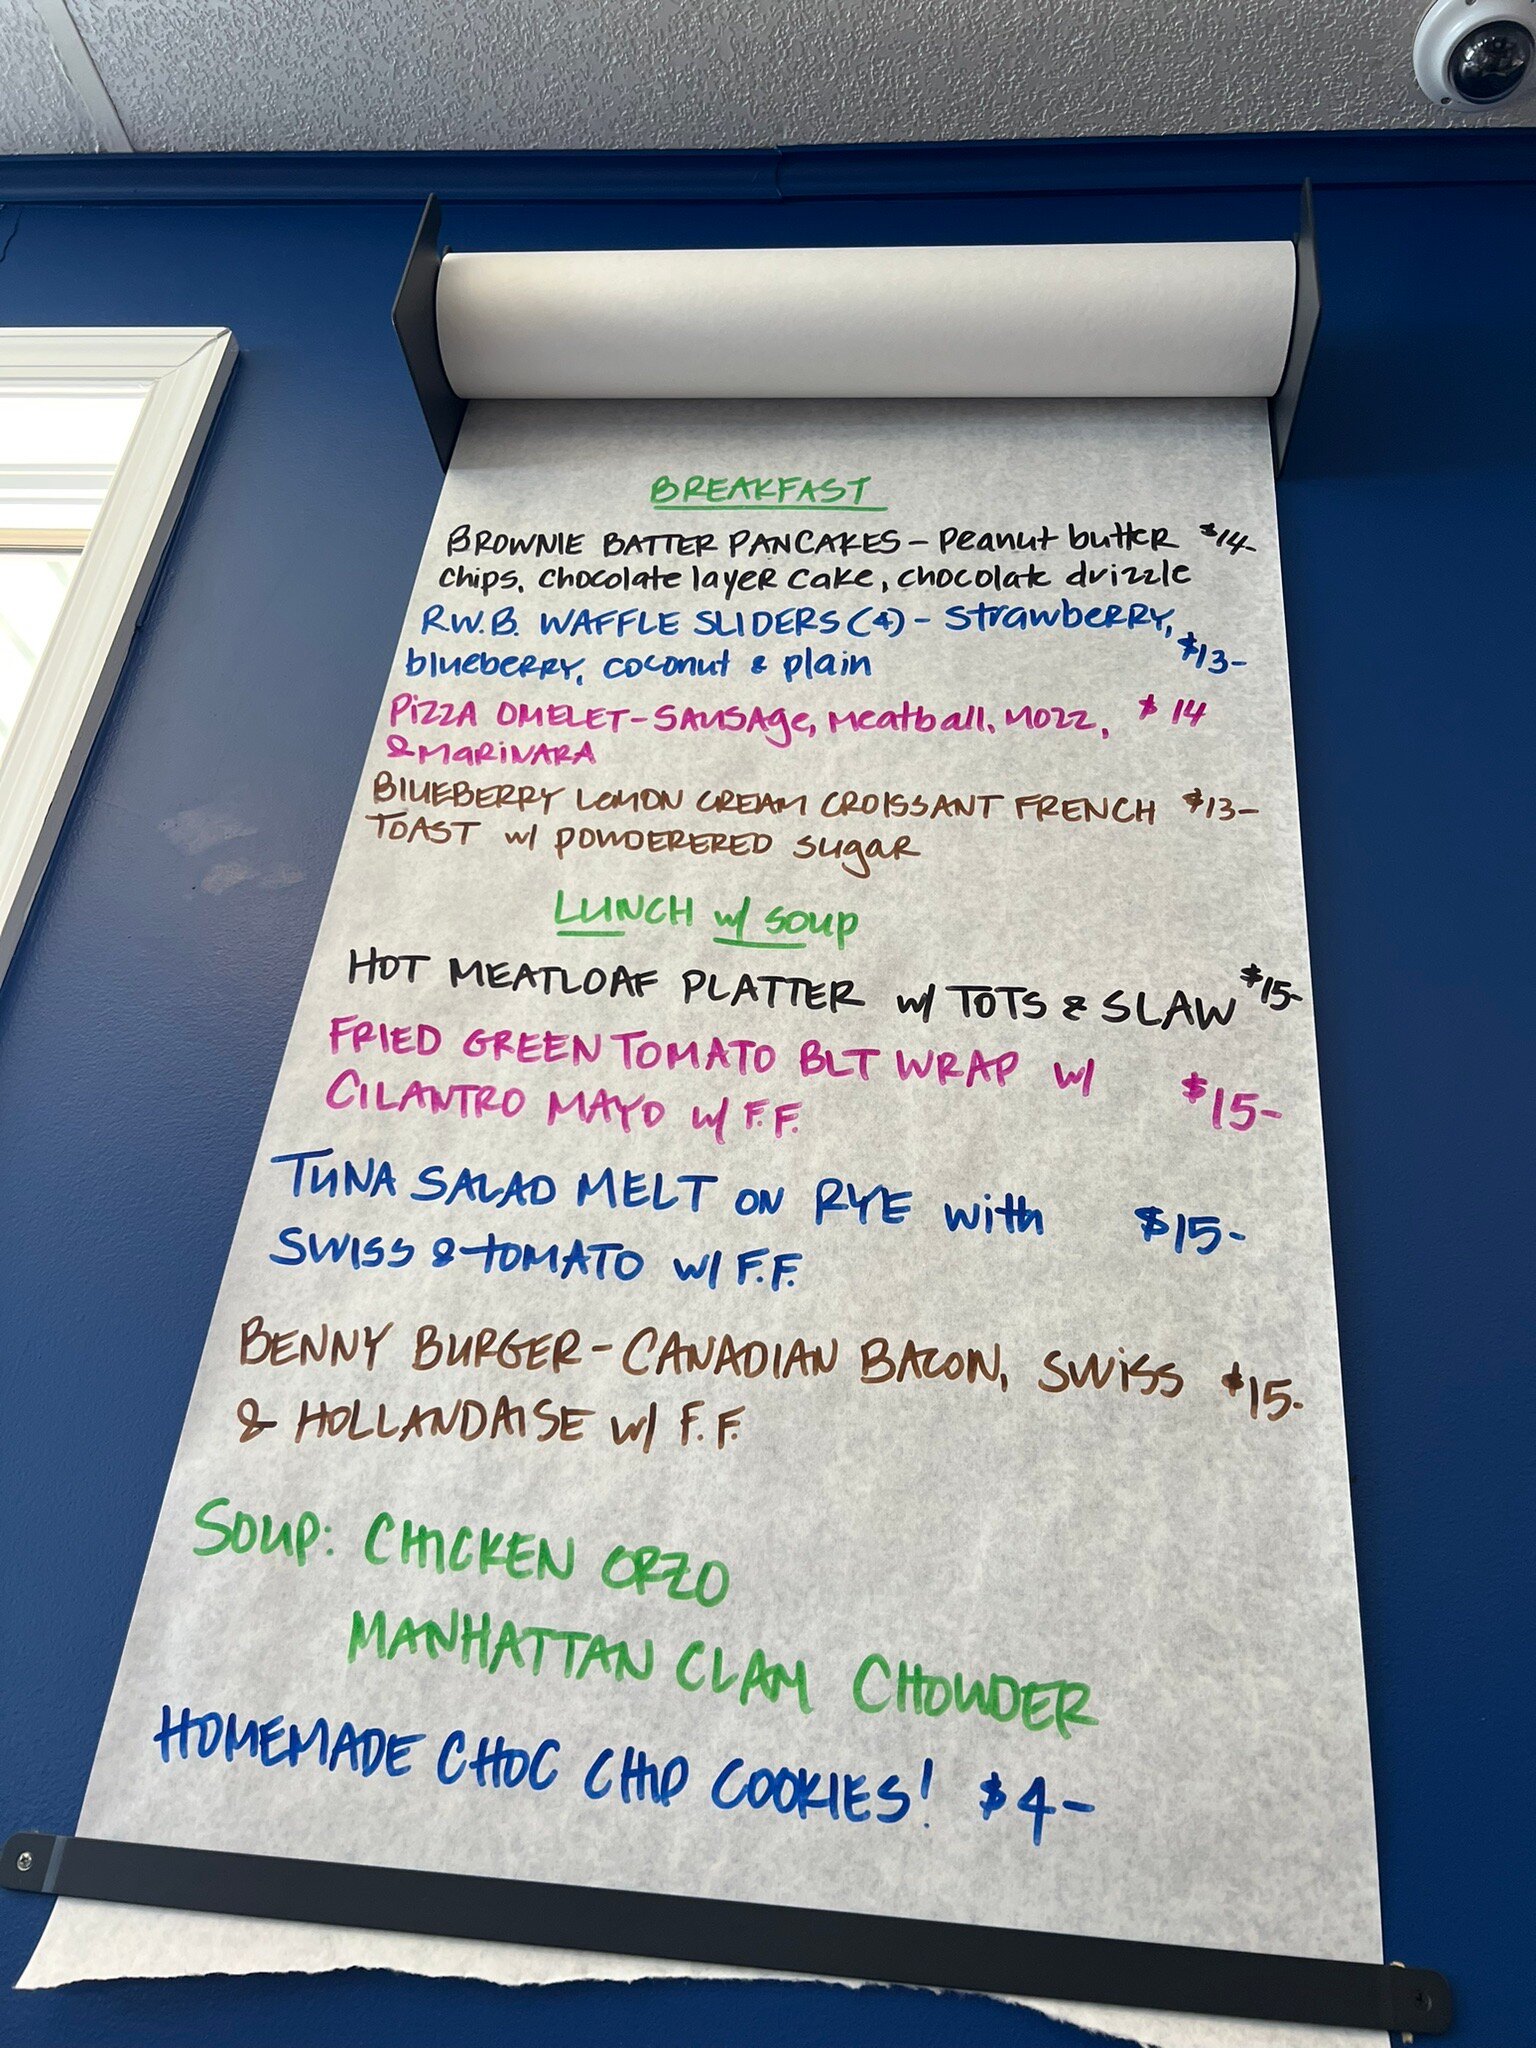 BREAKFAST
BROWNIE BATTER PANCAKES - Peanut butter $14-
chips, chocolate layer cake, chocolate drizzle
R.W.B. WAFFLE SLIDERS (4) - Strawberry,
blueberry, coconut & plain $13-
PIZZA OMELET - SAUSAge, Meatball, Mozz, $14
& MARINARA
BLUEBERRY LEMON CREAM CROISSANT FRENCH $13-
TOAST w/ POWDERERED SUgaR
LUNCH w/ Soup
HOT MEATLOAF PLATTER w/ TOTS & SLAW $15-
FRIED GREEN TOMATO BLT WRAP w/ $15-
CILANTRO MAYO w/ F.F.
TUNA SALAD MELT ON RYE with $15-
SWISS & TOMATO w/ F.F.
BENNY BURGER - CANADIAN BACON, SWISS $15-
& HOLLANDAISE w/ F.F.
SOUP: CHICKEN ORZO
MANHATTAN CLAM CHOWDER
HOMEMADE CHOC CHIP COOKIES! $4-